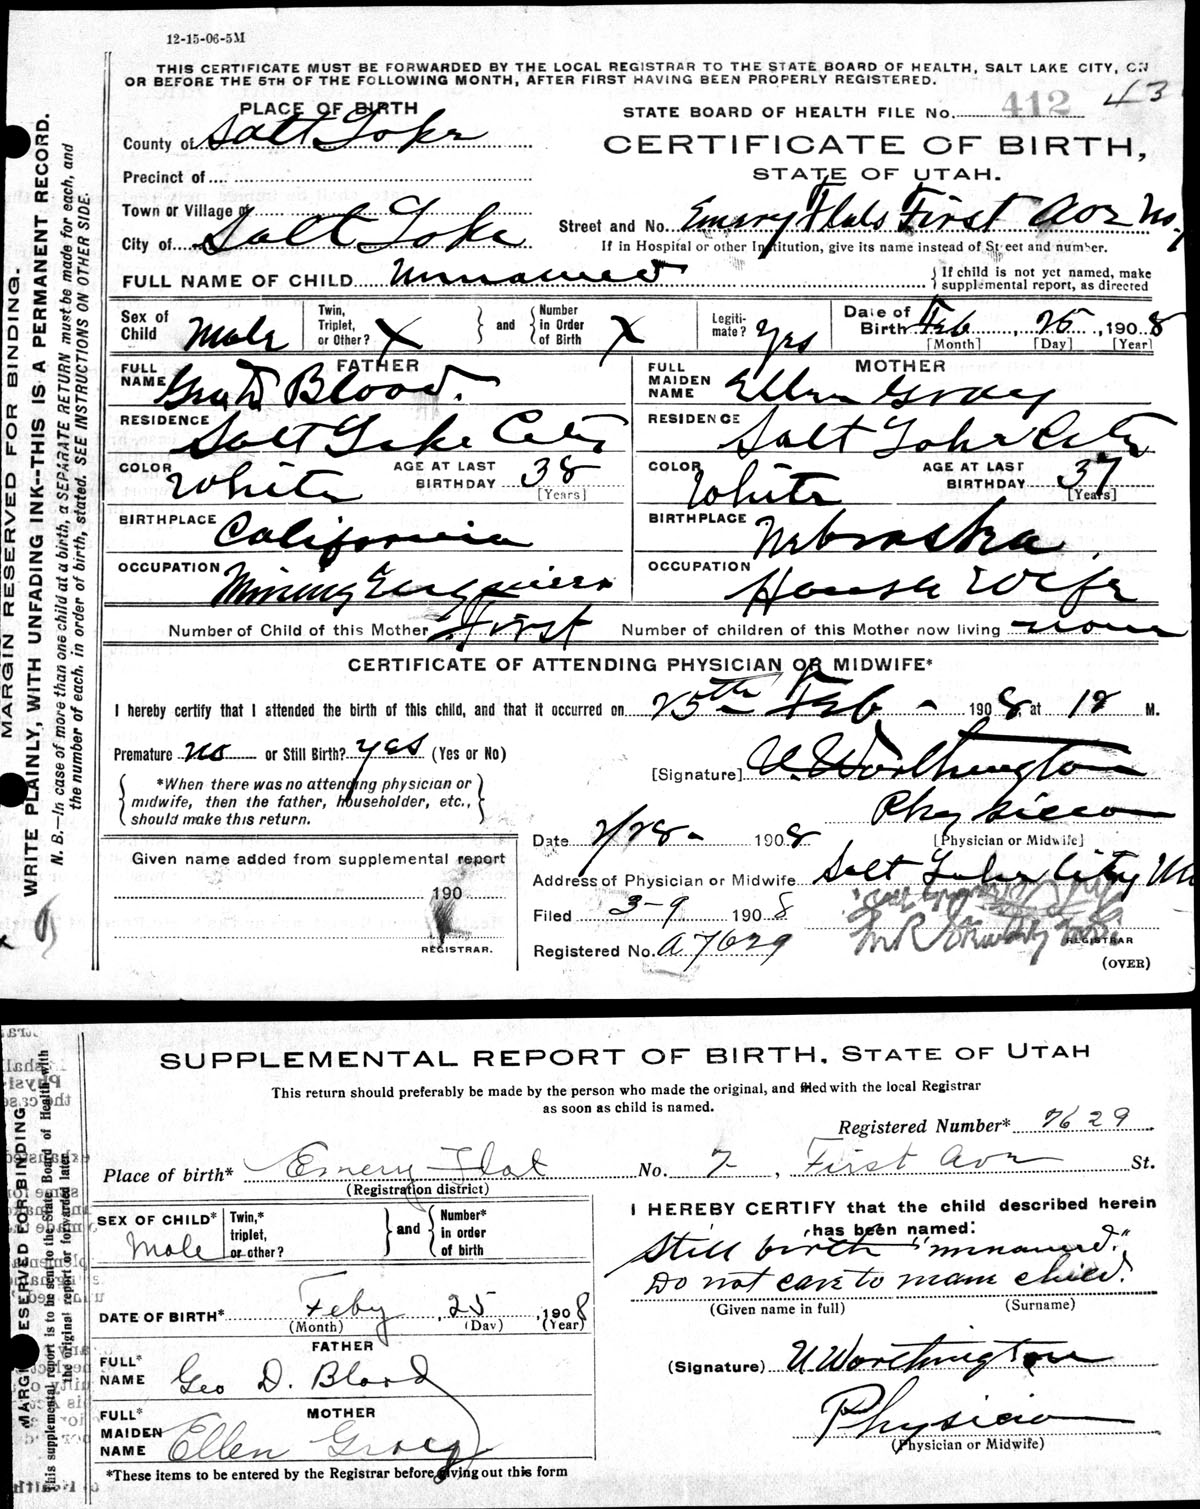 12-15-06-5M
THIS CERTIFICATE MUST BE FORWARDED BY THE LOCAL REGISTRAR TO THE STATE BOARD OF HEALTH, SALT LAKE CITY, ON
OR BEFORE THE 5TH OF THE FOLLOWING MONTH, AFTER FIRST HAVING BEEN PROPERLY REGISTERED.
43
PLACE OF BIRTH
STATE BOARD OF HEALTH FILE No. 412
County of Salt Lake
CERTIFICATE OF BIRTH,
Precinct of
STATE OF UTAH.
Town or Village of
Street and No. Emery Flats First Ave No. 7
City of Salt Lake
If in Hospital or other Institution, give its name instead of Street and number.
FULL NAME OF CHILD Unnamed
If child is not yet named, make
supplemental report, as directed
Sex of Child Male
Twin, Triplet, or Other? X and Number in Order of Birth X
Legitimate? Yes
Date of Birth Feb, 25, 1908
[Month] [Day] [Year]
FATHER
FULL NAME Geo D Blood.
RESIDENCE Salt Lake City
COLOR White AGE AT LAST BIRTHDAY 38
[Years]
BIRTHPLACE California
OCCUPATION Mining Engineer
MOTHER
FULL MAIDEN NAME Ellen Gray
RESIDENCE Salt Lake City
COLOR White AGE AT LAST BIRTHDAY 37
[Years]
BIRTHPLACE Nebraska
OCCUPATION House Wife
Number of Child of this Mother First Number of children of this Mother now living none
CERTIFICATE OF ATTENDING PHYSICIAN OR MIDWIFE*
I hereby certify that I attended the birth of this child, and that it occurred on 25th Feb - 1908, at 12 M.
Premature no or Still Birth? yes (Yes or No)
[Signature] U. Worthington
*When there was no attending physician or
midwife, then the father, householder, etc.,
should make this return.
Physician
[Physician or Midwife]
Date 2/28- 1908
Given name added from supplemental report
190
REGISTRAR.
Address of Physician or Midwife Salt Lake City
Filed 3-9 1908
Registered No. A 7629
REGISTRAR
(OVER)
MARGIN RESERVED FOR BINDING.
WRITE PLAINLY, WITH UNFADING INK--THIS IS A PERMANENT RECORD.
N. B.--In case of more than one child at a birth, a SEPARATE RETURN must be made for each, and
the number of each, in order of birth, stated. SEE INSTRUCTIONS ON OTHER SIDE.
SUPPLEMENTAL REPORT OF BIRTH, STATE OF UTAH
This return should preferably be made by the person who made the original, and filed with the local Registrar
as soon as child is named.
Registered Number* 7629
Place of birth* Emery Flat No. 7, First Ave St.
(Registration district)
SEX OF CHILD* Male
Twin,* triplet, or other? and Number* in order of birth
I HEREBY CERTIFY that the child described herein
has been named:
Still birth "unnamed."
Do not care to name child.
(Given name in full) (Surname)
DATE OF BIRTH* Feby, 25, 1908
(Month) (Day) (Year)
FATHER
FULL* NAME Geo D. Blood
(Signature) U. Worthington
MOTHER
FULL* MAIDEN NAME Ellen Gray
Physician
(Physician or Midwife)
*These items to be entered by the Registrar before giving out this form
MARGIN RESERVED FOR BINDING
This supplemental report is to be sent to the State Board of Health with
the original report or forwarded later.